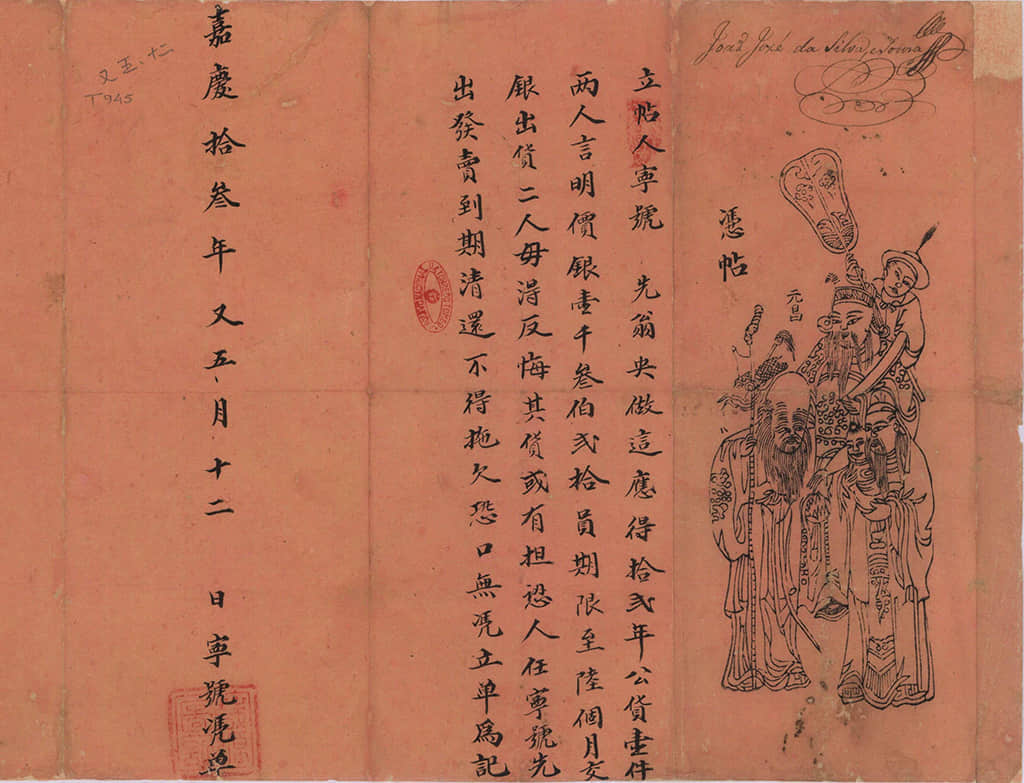 João José da Silva e Souza
憑帖
元昌
立帖人寧號 先翁央做這應得拾貳年公貨壹件
两人言明價銀壹千叄伯貳拾員期限至陸個月交
銀出貨二人毋得反悔其貨或有担恐人任寧號先
出發賣到期清還不得拖欠恐口無凴立单為記
嘉慶拾叄年又五月十二 日寧號凴单
又五、十二
T945